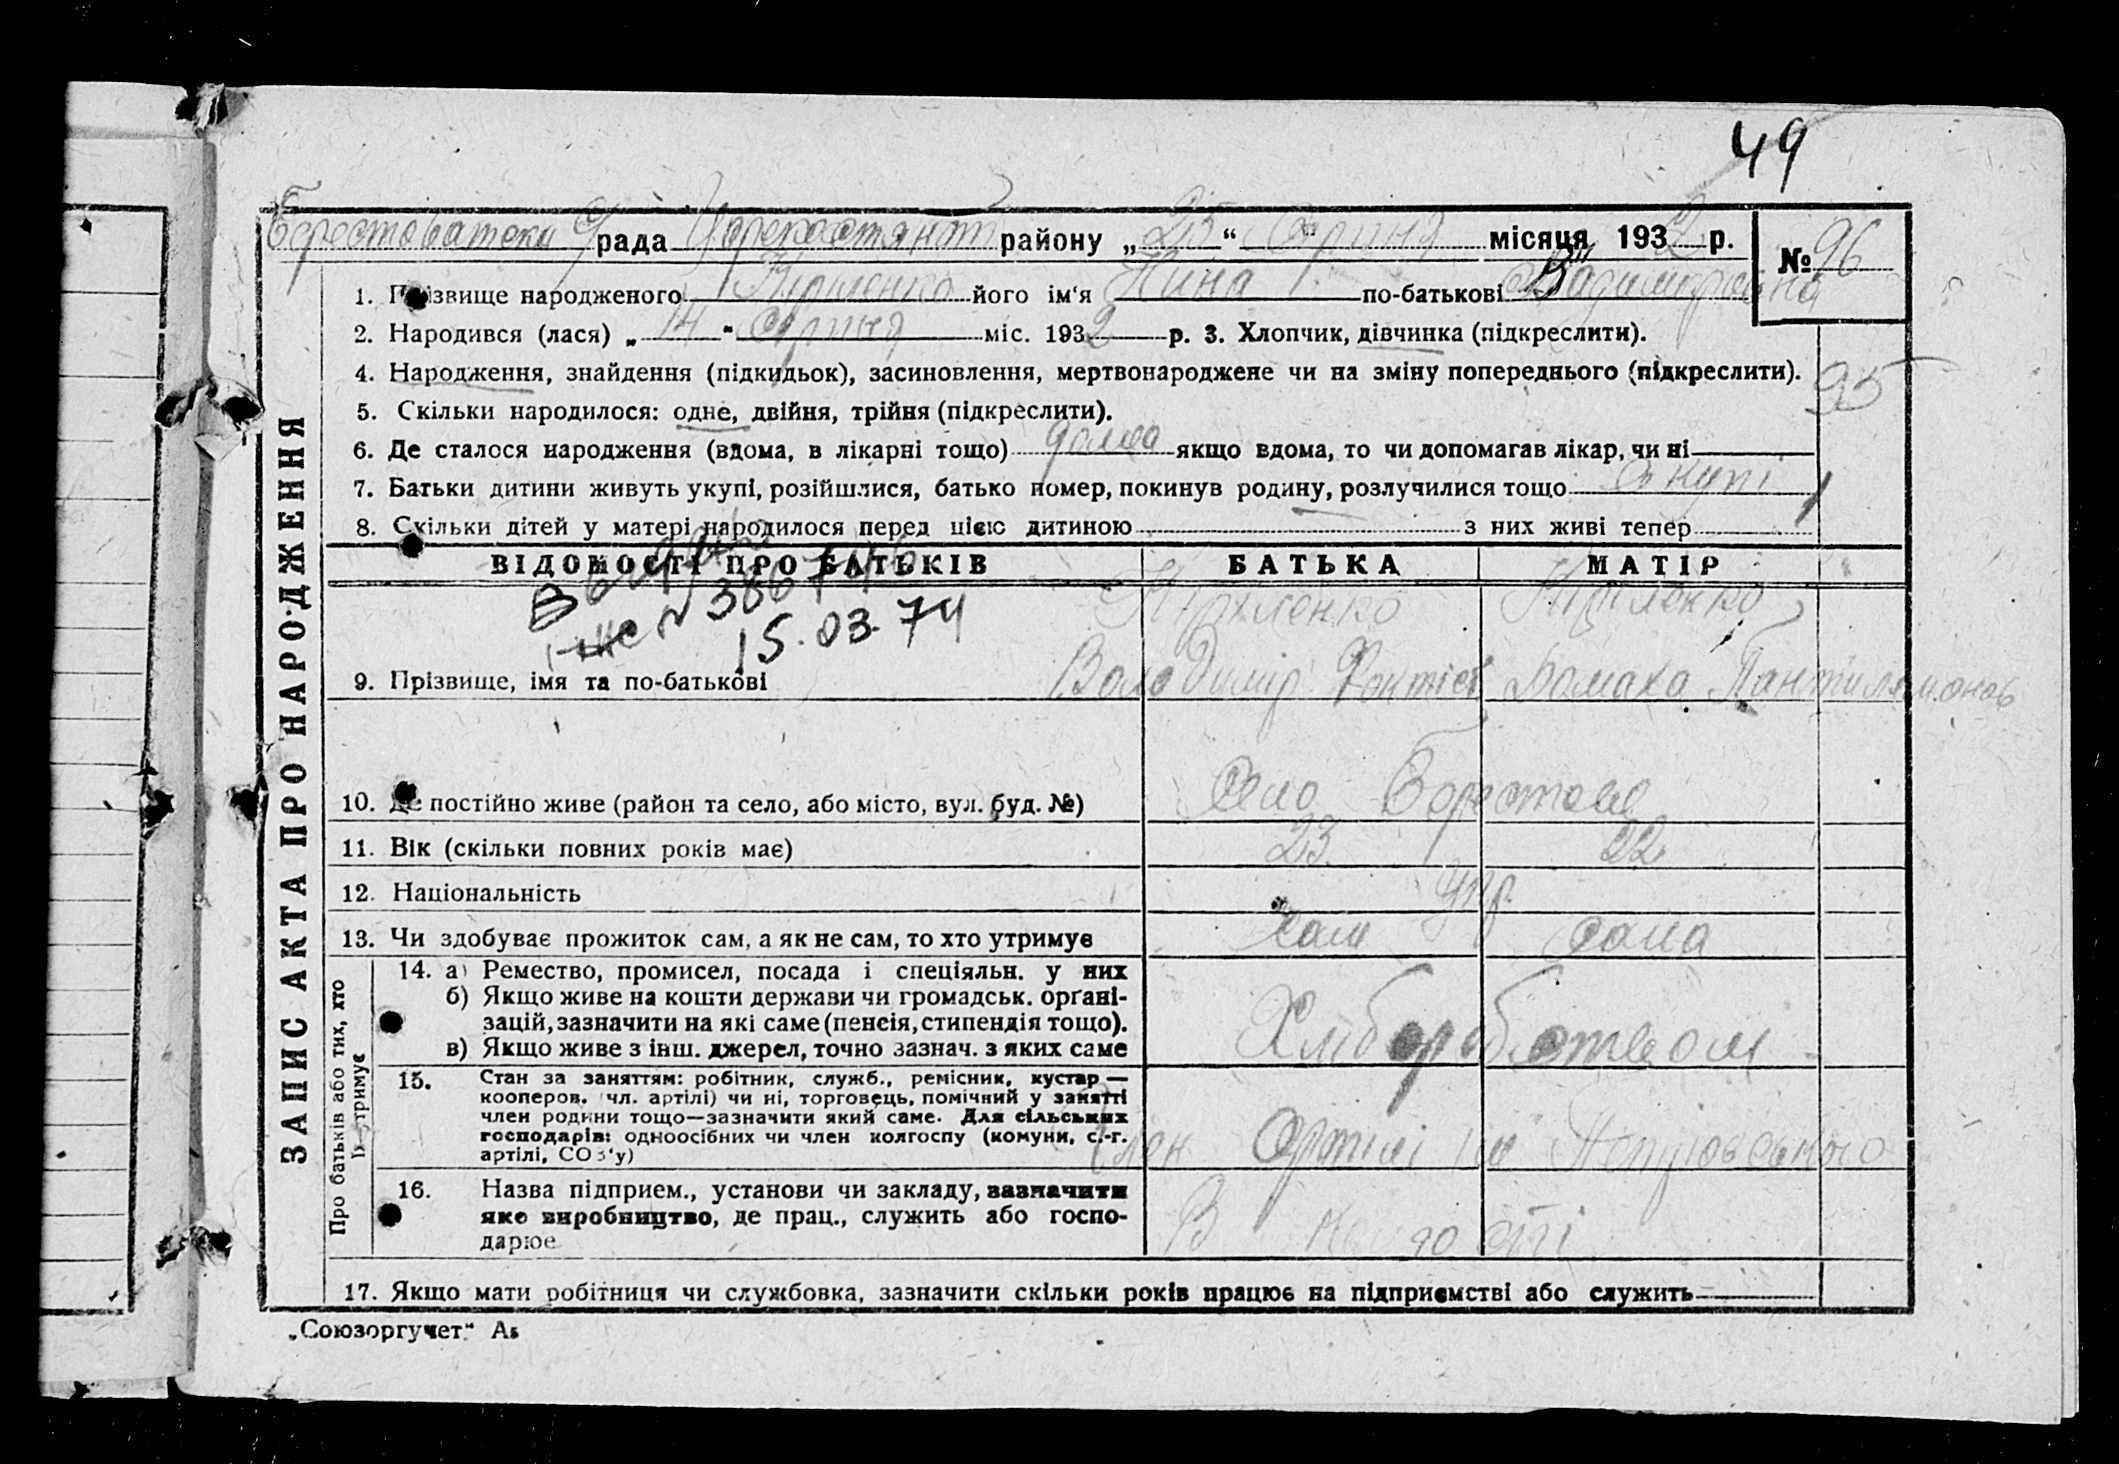 49
рада району „ 25 “ Серпня місяця 1932 р. № 96
1. Прізвище народженого його ім‘я Нина по-батькові
2. Народився (лася) „ 14 “ Серпня міс. 1932 р. 3. Хлопчик, дівчинка (підкреслити).
4. Народження, знайдення (підкидьок), засиновлення, мертвонароджене чи на зміну попереднього (підкреслити). 95
5. Скільки народилося: одне, двійня, трійня (підкреслити).
6. Де сталося народження (вдома, в лікарні тощо) дома якщо вдома, то чи допомагав лікар, чи ні
7. Батьки дитини живуть укупі, розійшлися, батько помер, покинув родину, розлучилися тощо
8. Скільки дітей у матері народилося перед цією дитиною з них живі тепер
ЗАПИС АКТА ПРО НАРОДЖЕННЯ
ВІДОМОСТІ ПРО БАТЬКІВ БАТЬКА МАТІР
15.03.74
9. Прізвище, імя та по-батькові Володимір Домаха
10. Де постійно живе (район та село, або місто, вул. буд. №) Село Берестове
11. Вік (скільки повних років має) 23 22
12. Національність укр.
13. Чи здобуває прожиток сам, а як не сам, то хто утримує сам сама
Про батьків або тих, хто їх утримує
14. а) Ремество, промисел, посада і спеціяльн. у них
б) Якщо живе на кошти держави чи громадськ. орґані-
зацій, зазначити на які саме (пенсія, стипендія тощо).
в) Якщо живе з інш. джерел, точно зазнач. з яких саме
Хліборобством
15. Стан за заняттям: робітник, служб., ремісник, кустар —
кооперов. чл. артілі) чи ні, торговець, помічний у занятті
член родини тощо—зазначити який саме. Для сільських
господарів: одноосібних чи член колгоспу (комуни, с.-г.
артілі, СОЗ‘у)
Член Артілі ім Петровського
16. Назва підприєм., установи чи закладу, зазначити
яке виробництво, де прац., служить або госпо-
дарює
В
17. Якщо мати робітниця чи службовка, зазначити скільки років працює на підприємстві або служить
„Союзоргучет“